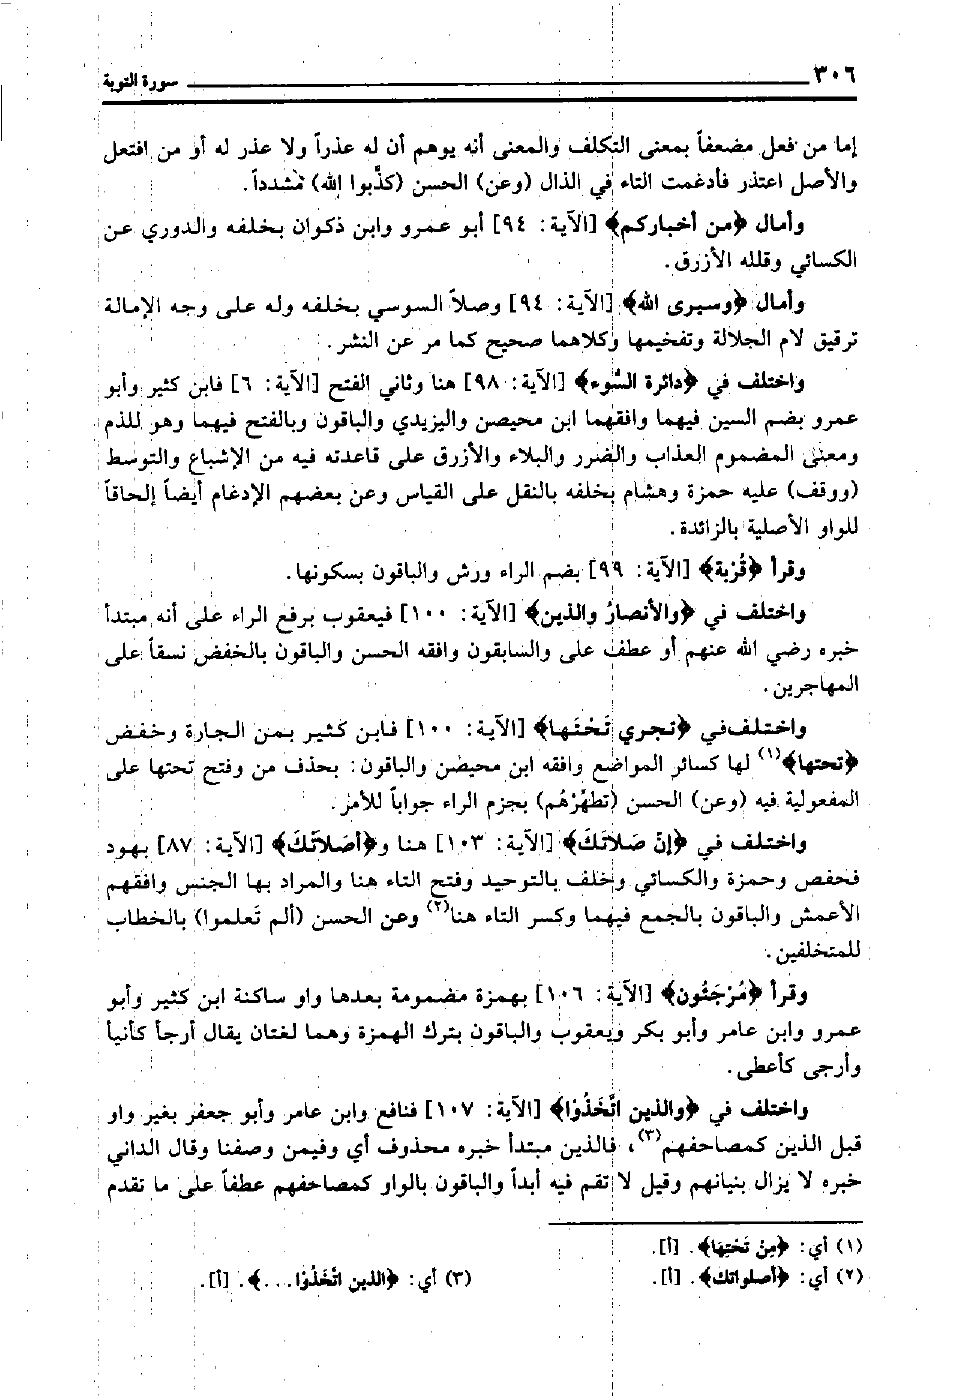 ٣٠٦ سورة التوبة
إما من فعل مضعفاً بمعنى التكلف والمعنى أنه يوهم أن له عذراً ولا عذر له أو من افتعل
والأصل اعتذر فأدغمت التاء في الذال (وعن) الحسن (كذّبوا الله) مشدداً.
وأمال ﴿من أخباركم﴾ [الآية: ٩٤] أبو عمرو وابن ذكوان بخلفه والدوري عن
الكسائي وقلله الأزرق.
وأمال ﴿وسيرى الله﴾ [الآية: ٩٤] وصلاً السوسي بخلفه وله على وجه الإمالة
ترقيق لام الجلالة وتفخيمها وكلاهما صحيح كما مر عن النشر.
واختلف في ﴿دائرة السُّوء﴾ [الآية: ٩٨] هنا وثاني الفتح [الآية: ٦] فابن كثير وأبو
عمرو بضم السين فيهما وافقهما ابن محيصن واليزيدي والباقون وبالفتح فيهما وهو للذم
ومعنى المضموم العذاب والضرر والبلاء والأزرق على قاعدته فيه من الإشباع والتوسط
(ووقف) عليه حمزة وهشام بخلفه بالنقل على القياس وعن بعضهم الإدغام أيضاً إلحاقاً
للواو الأصلية بالزائدة.
وقرأ ﴿قُرُبة﴾ [الآية: ٩٩] بضم الراء ورش والباقون بسكونها.
واختلف في ﴿والأنصارُ والذين﴾ [الآية: ١٠٠] فيعقوب برفع الراء على أنه مبتدأ
خبره رضي الله عنهم أو عطف على والسابقون وافقه الحسن والباقون بالخفض نسقاً على
المهاجرين.
واختلف في ﴿تجري تَحْتَها﴾ [الآية: ١٠٠] فابن كثير بمن الجارة وخفض
﴿تحتها﴾(١) لها كسائر المواضع وافقه ابن محيصن والباقون: بحذف من وفتح تحتها على
المفعولية فيه (وعن) الحسن (تطهّرْهُم) بجزم الراء جواباً للأمر.
واختلف في ﴿إنّ صَلاتَكَ﴾ [الآية: ١٠٣] هنا و﴿أصَلاتُكَ﴾ [الآية: ٨٧] بهود
فحفص وحمزة والكسائي وخلف بالتوحيد وفتح التاء هنا والمراد بها الجنس وافقهم
الأعمش والباقون بالجمع فيهما وكسر التاء هنا(٢) وعن الحسن (ألم تَعلموا) بالخطاب
للمتخلفين.
وقرأ ﴿مُرْجَئُون﴾ [الآية: ١٠٦] بهمزة مضمومة بعدها واو ساكنة ابن كثير وأبو
عمرو وابن عامر وأبو بكر ويعقوب والباقون بترك الهمزة وهما لغتان يقال أرجأ كأنبأ
وأرجى كأعطى.
واختلف في ﴿والذين اتَّخَذُوْا﴾ [الآية: ١٠٧] فنافع وابن عامر وأبو جعفر بغير واو
قبل الذين كمصاحفهم(٣)، فالذين مبتدأ خبره محذوف أي وفيمن وصفنا وقال الداني
خبره لا يزال بنيانهم وقيل لا تقم فيه أبداً والباقون بالواو كمصاحفهم عطفاً على ما تقدم
(١) أي: ﴿مِنْ تَحْتِهَا﴾. [أ].
(٢) أي: ﴿أصلواتك﴾. [أ]. (٣) أي: ﴿الذين اتْخَذُوْا...﴾. [أ].